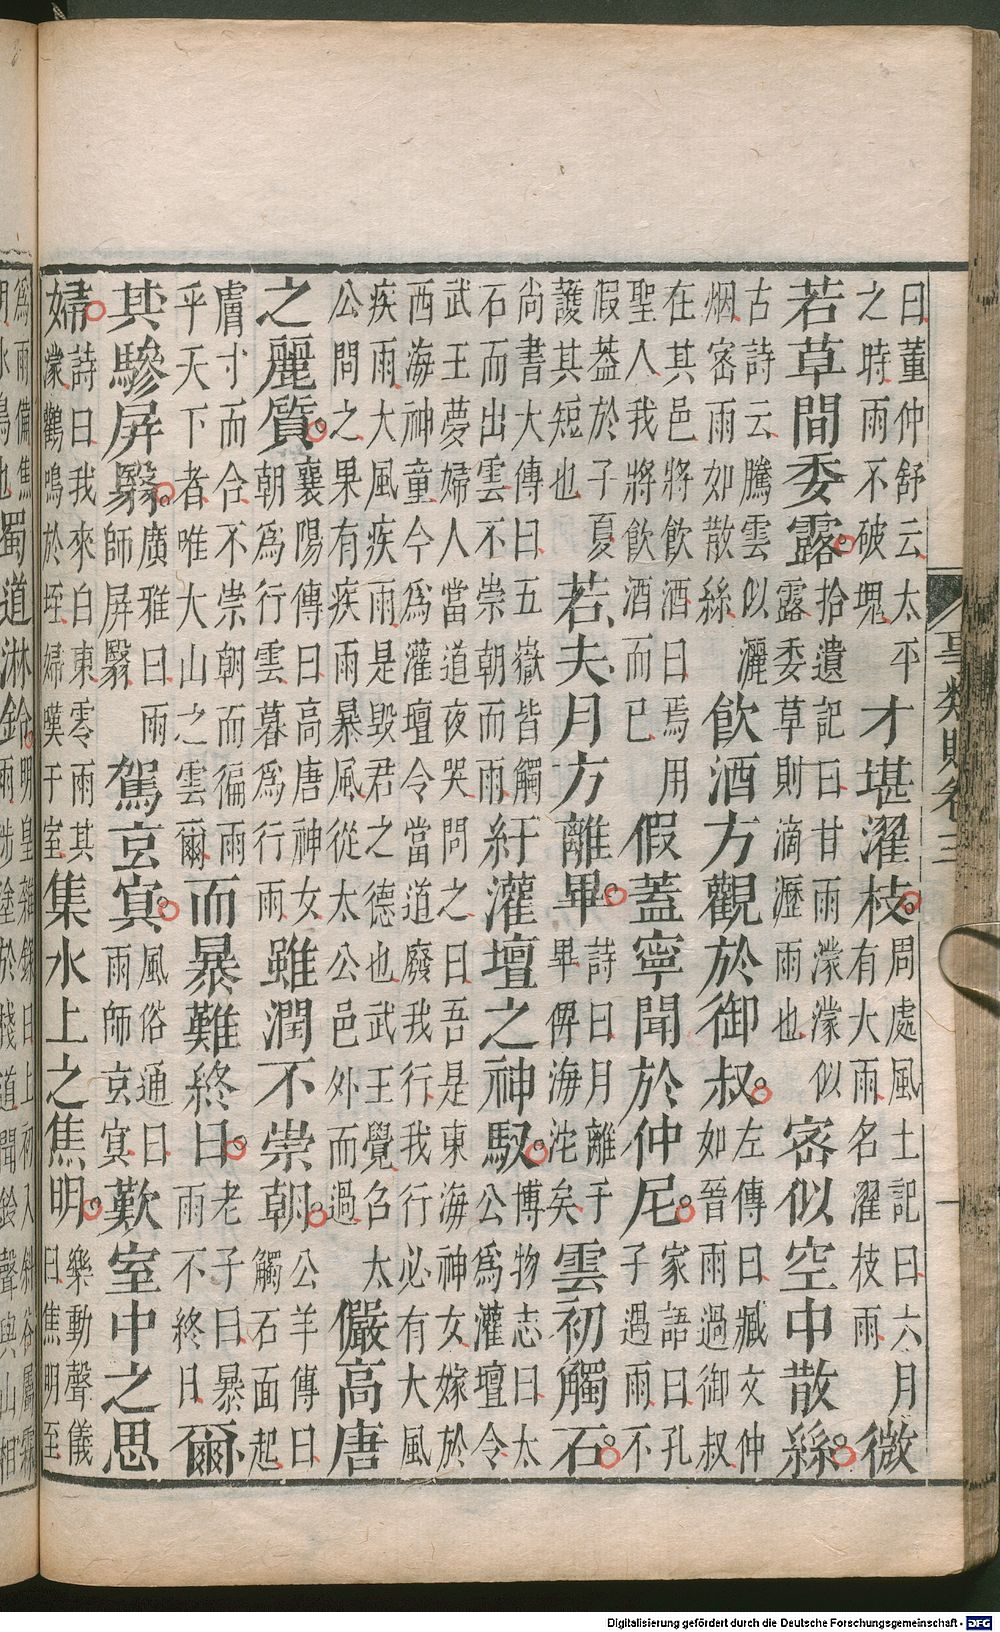 曰董仲舒云太平
之時雨不破塊
才堪濯枝
周處風土記曰六月
有大雨名濯枝雨
微
若草間委露
拾遺記曰甘雨濛濛似
露委草則滴瀝雨也
密似空中散絲
古詩云騰雲似灑
烟密雨如散絲
飲酒方觀於御叔
左傳曰臧文仲
如晉雨過御叔
在其邑將飲酒曰焉用
聖人我將飲酒而已
假蓋寧聞於仲尼
家語曰孔
子遇雨不
假葢於子夏
護其短也
若夫月方離畢
詩曰月離于
畢俾滂沱矣
雲初觸石
尚書大傳曰五嶽皆觸
石而出雲不崇朝而雨
紆灌壇之神馭
博物志曰太
公為灌壇令
武王夢婦人當道夜哭問之曰吾是東海神女嫁於
西海神童今為灌壇令當道廢我行我行必有大風
疾雨大風疾雨是毀君之德也武王覺召太
公問之果有疾雨暴風從太公邑外而過
儼高唐
之麗質
襄陽傳曰高唐神女
朝為行雲暮為行雨
雖潤不崇朝
公羊傳曰
觸石面起
膚寸而合不崇朝而徧雨
乎天下者唯大山之雲爾
而暴難終日
老子曰暴
雨不終日
爾
其驂屏翳
廣雅曰雨
師屏翳
駕玄冥
風俗通曰
雨師玄冥
歎室中之思
婦
詩曰我來自東零雨其
濛鸛鳴於垤婦嘆于室
集水上之焦明
樂動聲儀
曰焦明至
為雨備焦
明水鳥也
蜀道淋鈴
明皇雜錄曰上初入斜谷屬霖
雨涉塗於棧道聞鈴聲與山相
事類賦卷三
一
Digitalisierung gefördert durch die Deutsche Forschungsgemeinschaft - DFG